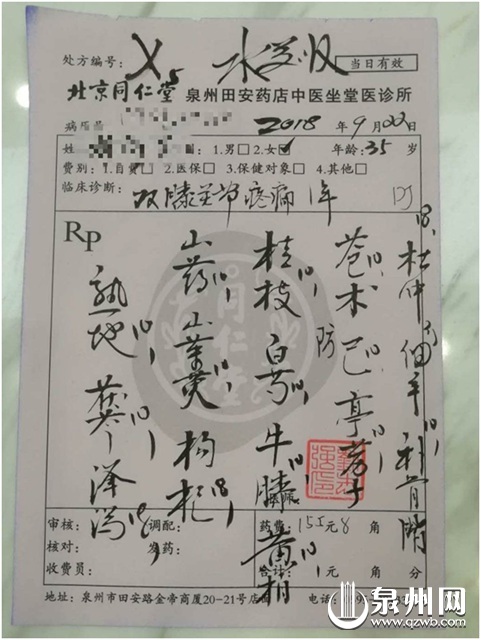 处方编号： 当日有效
北京同仁堂 泉州田安药店中医坐堂医诊所
2018年9月22日
姓 1.男□ 2.女☑ 年龄：35岁
费别：1.自费□ 2.医保□ 3.保健对象□ 4.其他□
临床诊断：双膝关节疼痛1年
RP
熟地10 茯苓10 泽泻8
山药10 山茱萸10 枸杞18
桂枝10 白芍10 牛膝10 黄柏10
苍术10 防己10 葶苈子
杜仲 细辛 补骨脂
审核： 调配： 药费： 元8角
核对： 发药：
收费员： 合计： 元 角 分
地址：泉州市田安路金帝商厦20-21号店面 电话：
泉州网
www.qzwb.com